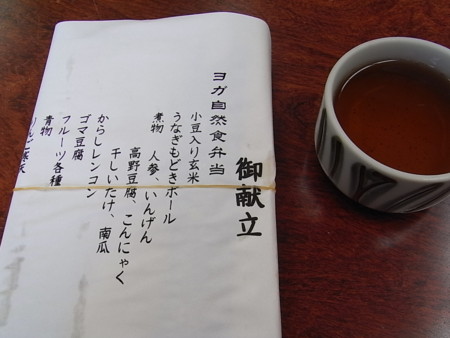 御献立
ヨガ自然食弁当
小豆入り玄米
うなぎもどきボール
煮物 人参、いんげん
高野豆腐、こんにゃく
干しいたけ、南瓜
からしレンコン
ゴマ豆腐
フルーツ各種
青物